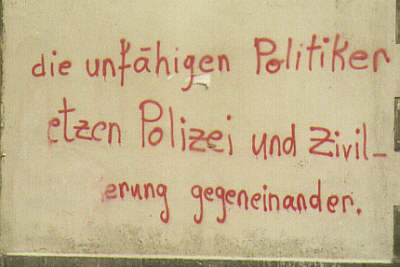 die unfähigen Politiker
etzen Polizei und Zivil-
erung gegeneinander.